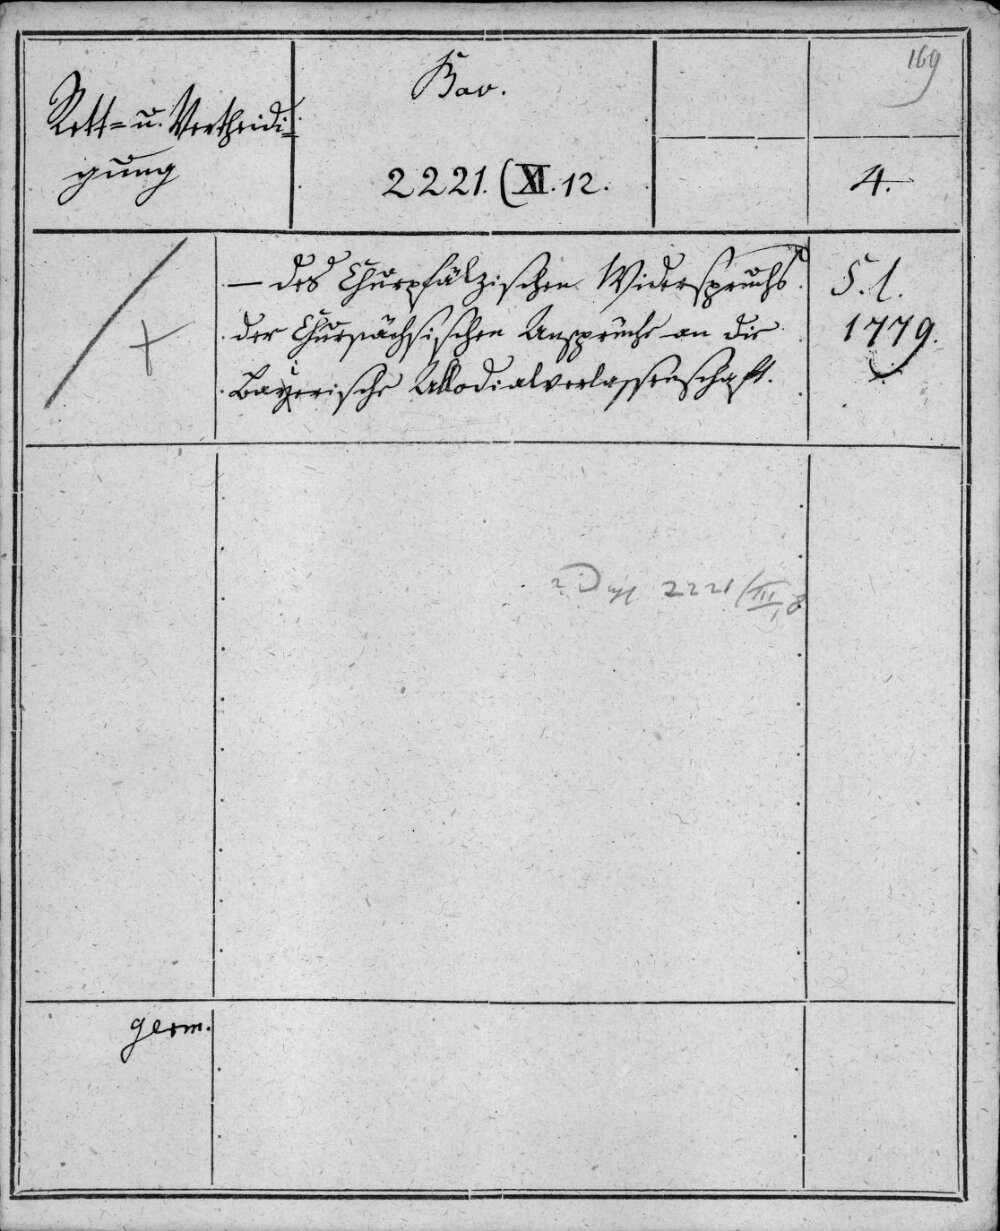 169
Rett- u. Vertheidi-
gung
Bav.
2221. (XI. 12.
4.
— des Churpfälzischen Widerspruchs
der Chursächsischen Ansprüche an die
Bayerische Allodialverlassenschaft.
S. l.
1779.
2221/III,8
germ.